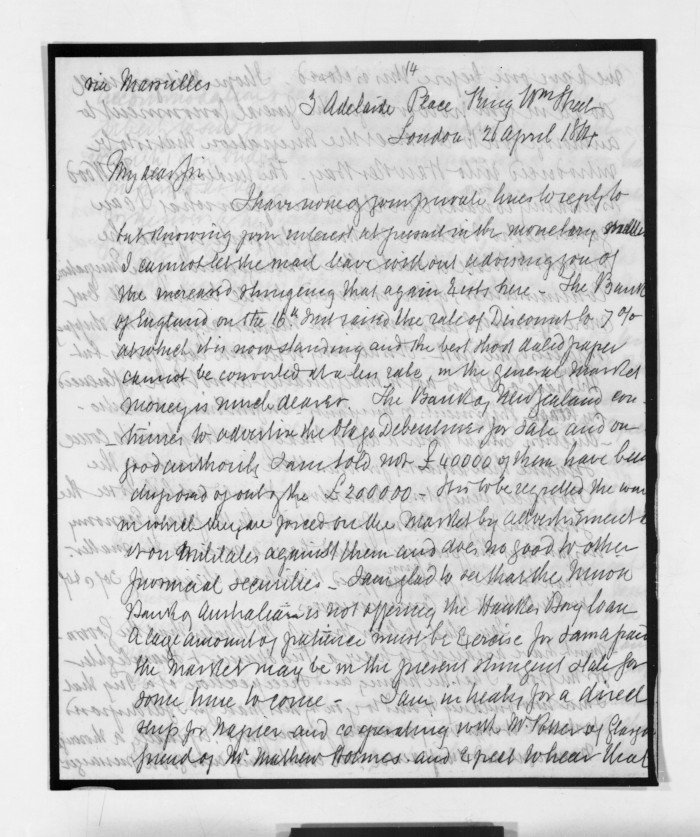 14
via Marseilles
3 Adelaide Place King Wm Street
London 26 April 1864
My dear Sir
I have none of your private lines to reply to
but knowing your interest at present in the monetary
I cannot let the mail leave without advising you of
the increased stringency that again exists here - The Bank
of England on the 16th Inst raised the rate of Discount to 7%
at which it is now standing and the best short dated paper
cannot be converted at a less rate, in the general market
money is much dearer. The Bank of New Zealand con-
-tinues to advertise the Otago Debentures for Sale and on
good authority I am told not £40000 of them have been
disposed of out of the £200000 - It is to be regretted the way
in which they are forced on the Market by advertisement
it militates against them and does no good to other
Provincial securities - I am glad to see that the Union
Bank of Australia is not offering the Hawkes Bay loan
A large amount of patience must be Exercise for I am afraid
the market may be in the present stringent state for
some time to come - I am in treaty for a direct
ship for Napier and co operating with Mr Potter of Glasgow
friend of Mr Mathew Holmes and Expect to hear that